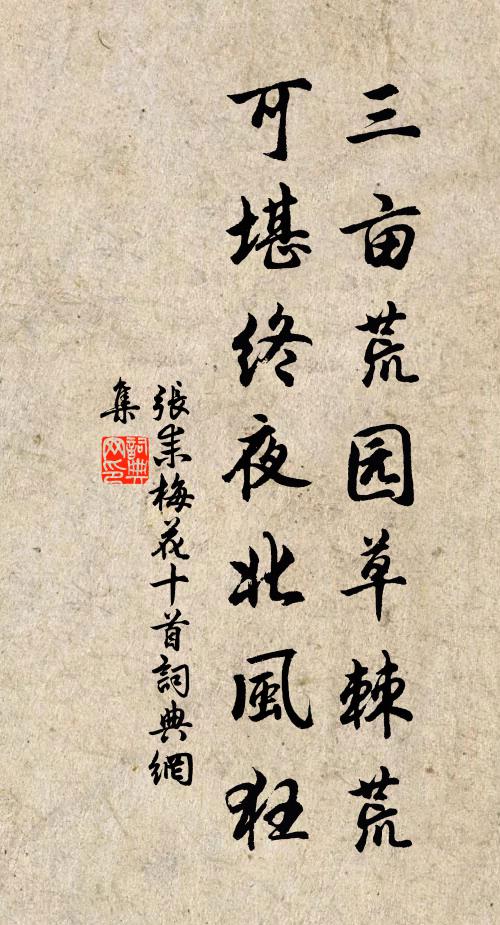 三亩荒园草棘荒
可堪终夜北風狂
張耒梅花十首詞典網
集
詞典网印